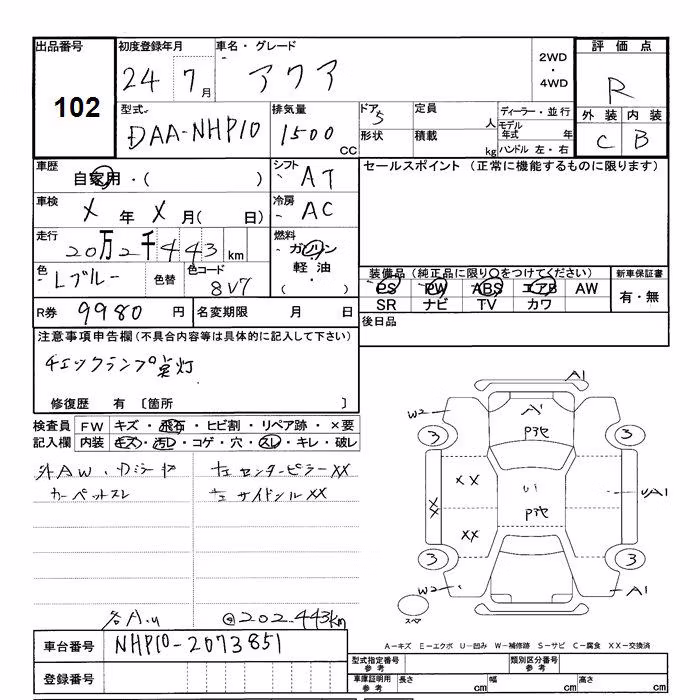 出品番号 初度登録年月 車名・グレード 2WD ・ 4WD 評価点
102 24 7月 アクア R
型式 排気量 ドア 定員 人 ディーラー・並行 外装 内装
DAA-NHP10 1500 CC 5 形状 積載 kg モデル年式 年 ハンドル 左・右 C B
車歴 自家用・( ) シフト AT セールスポイント (正常に機能するものに限ります)
車検 X 年 X 月( 日) 冷房 AC
走行 20万2千443 km 燃料 ガソリン・軽油・( )
色 Lブルー 色替 色コード 8V7 装備品 (純正品に限り○をつけてください) 新車保証書
PS PW ABS エアB AW 有・無
SR ナビ TV カワ
R券 9980 円 名変期限 月 日 後日品
注意事項申告欄 (不具合内容等は具体的に記入して下さい)
チェックランプ点灯
修復歴 有 〔箇所 〕
検査員 FW キズ・飛石・ヒビ割・リペア跡・×要
記入欄 内装 キズ・汚レ・コゲ・穴・スレ・キレ・破レ
左センターピラーXX
カーペットスレ 左サイドシルXX
A1
W2 A'
3 P3セ 3
XX
XX UA1
XX P3セ
3 3
W2 A1
スペア
@202.443km
A−キズ E−エクボ U−凹み W−補修跡 S−サビ C−腐食 XX−交換済
車台番号 NHP10-2073851
型式指定番号 参考 類別区分番号 参考
登録番号 車庫証明用 参考 長さ cm 幅 cm 高さ cm